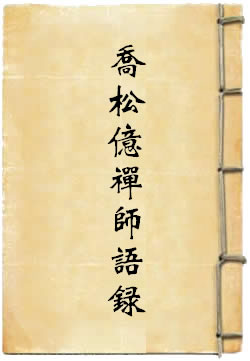 喬松億禪師語録